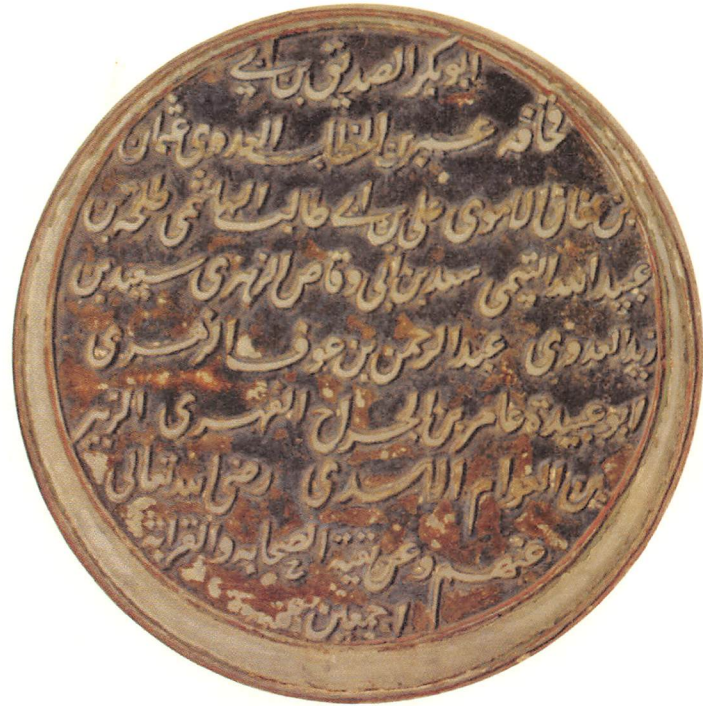 ابوبكر الصديق بن ابے
قحافه عمر بن الخطاب العدوى عثمان
بن عفان الاموى على بن ابے طالب الهاشمى طلحة بن
عبيد الله التيمى سعد بن ابى وقاص الزهرى سعيد بن
زيد العدوى عبد الرحمن بن عوف الزهرى
ابو عبيدة عامر بن الجراح الفهرى الزبير
بن العوام الاسدى رضى الله تعالى
عنهم وعن بقية الصحابه والقرابة
اجمعين